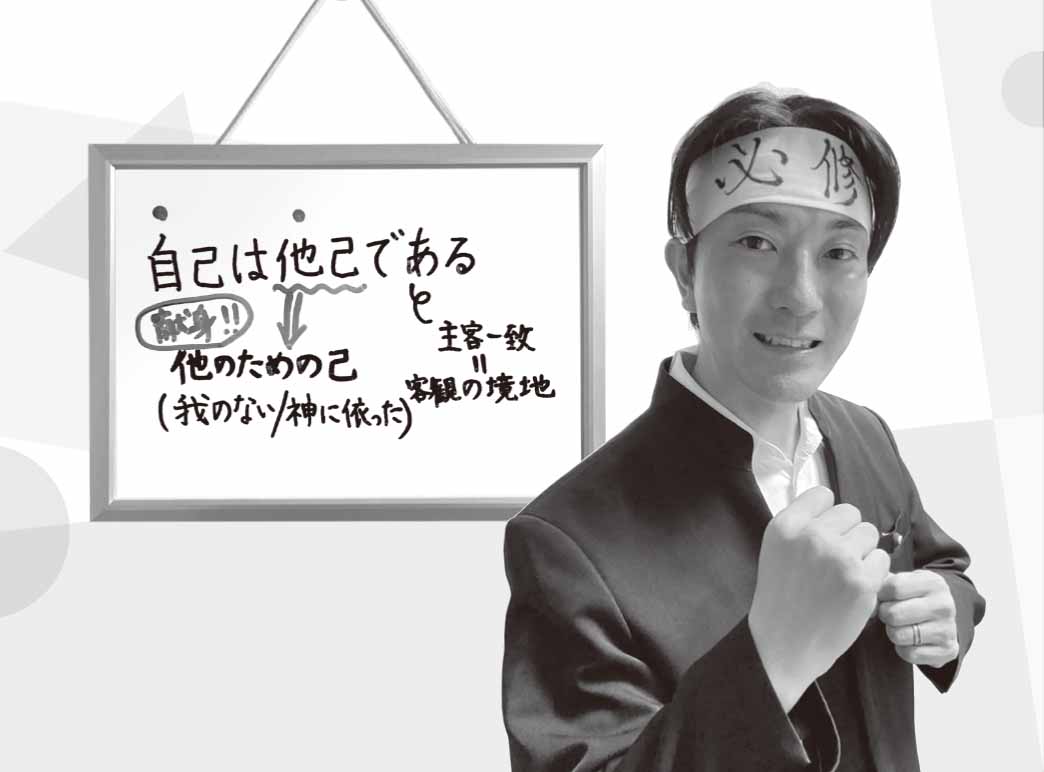 自己は他己である
と
献身!!
主客一致
=
他のための己
客観の境地
(我のない/神に依った)
必修